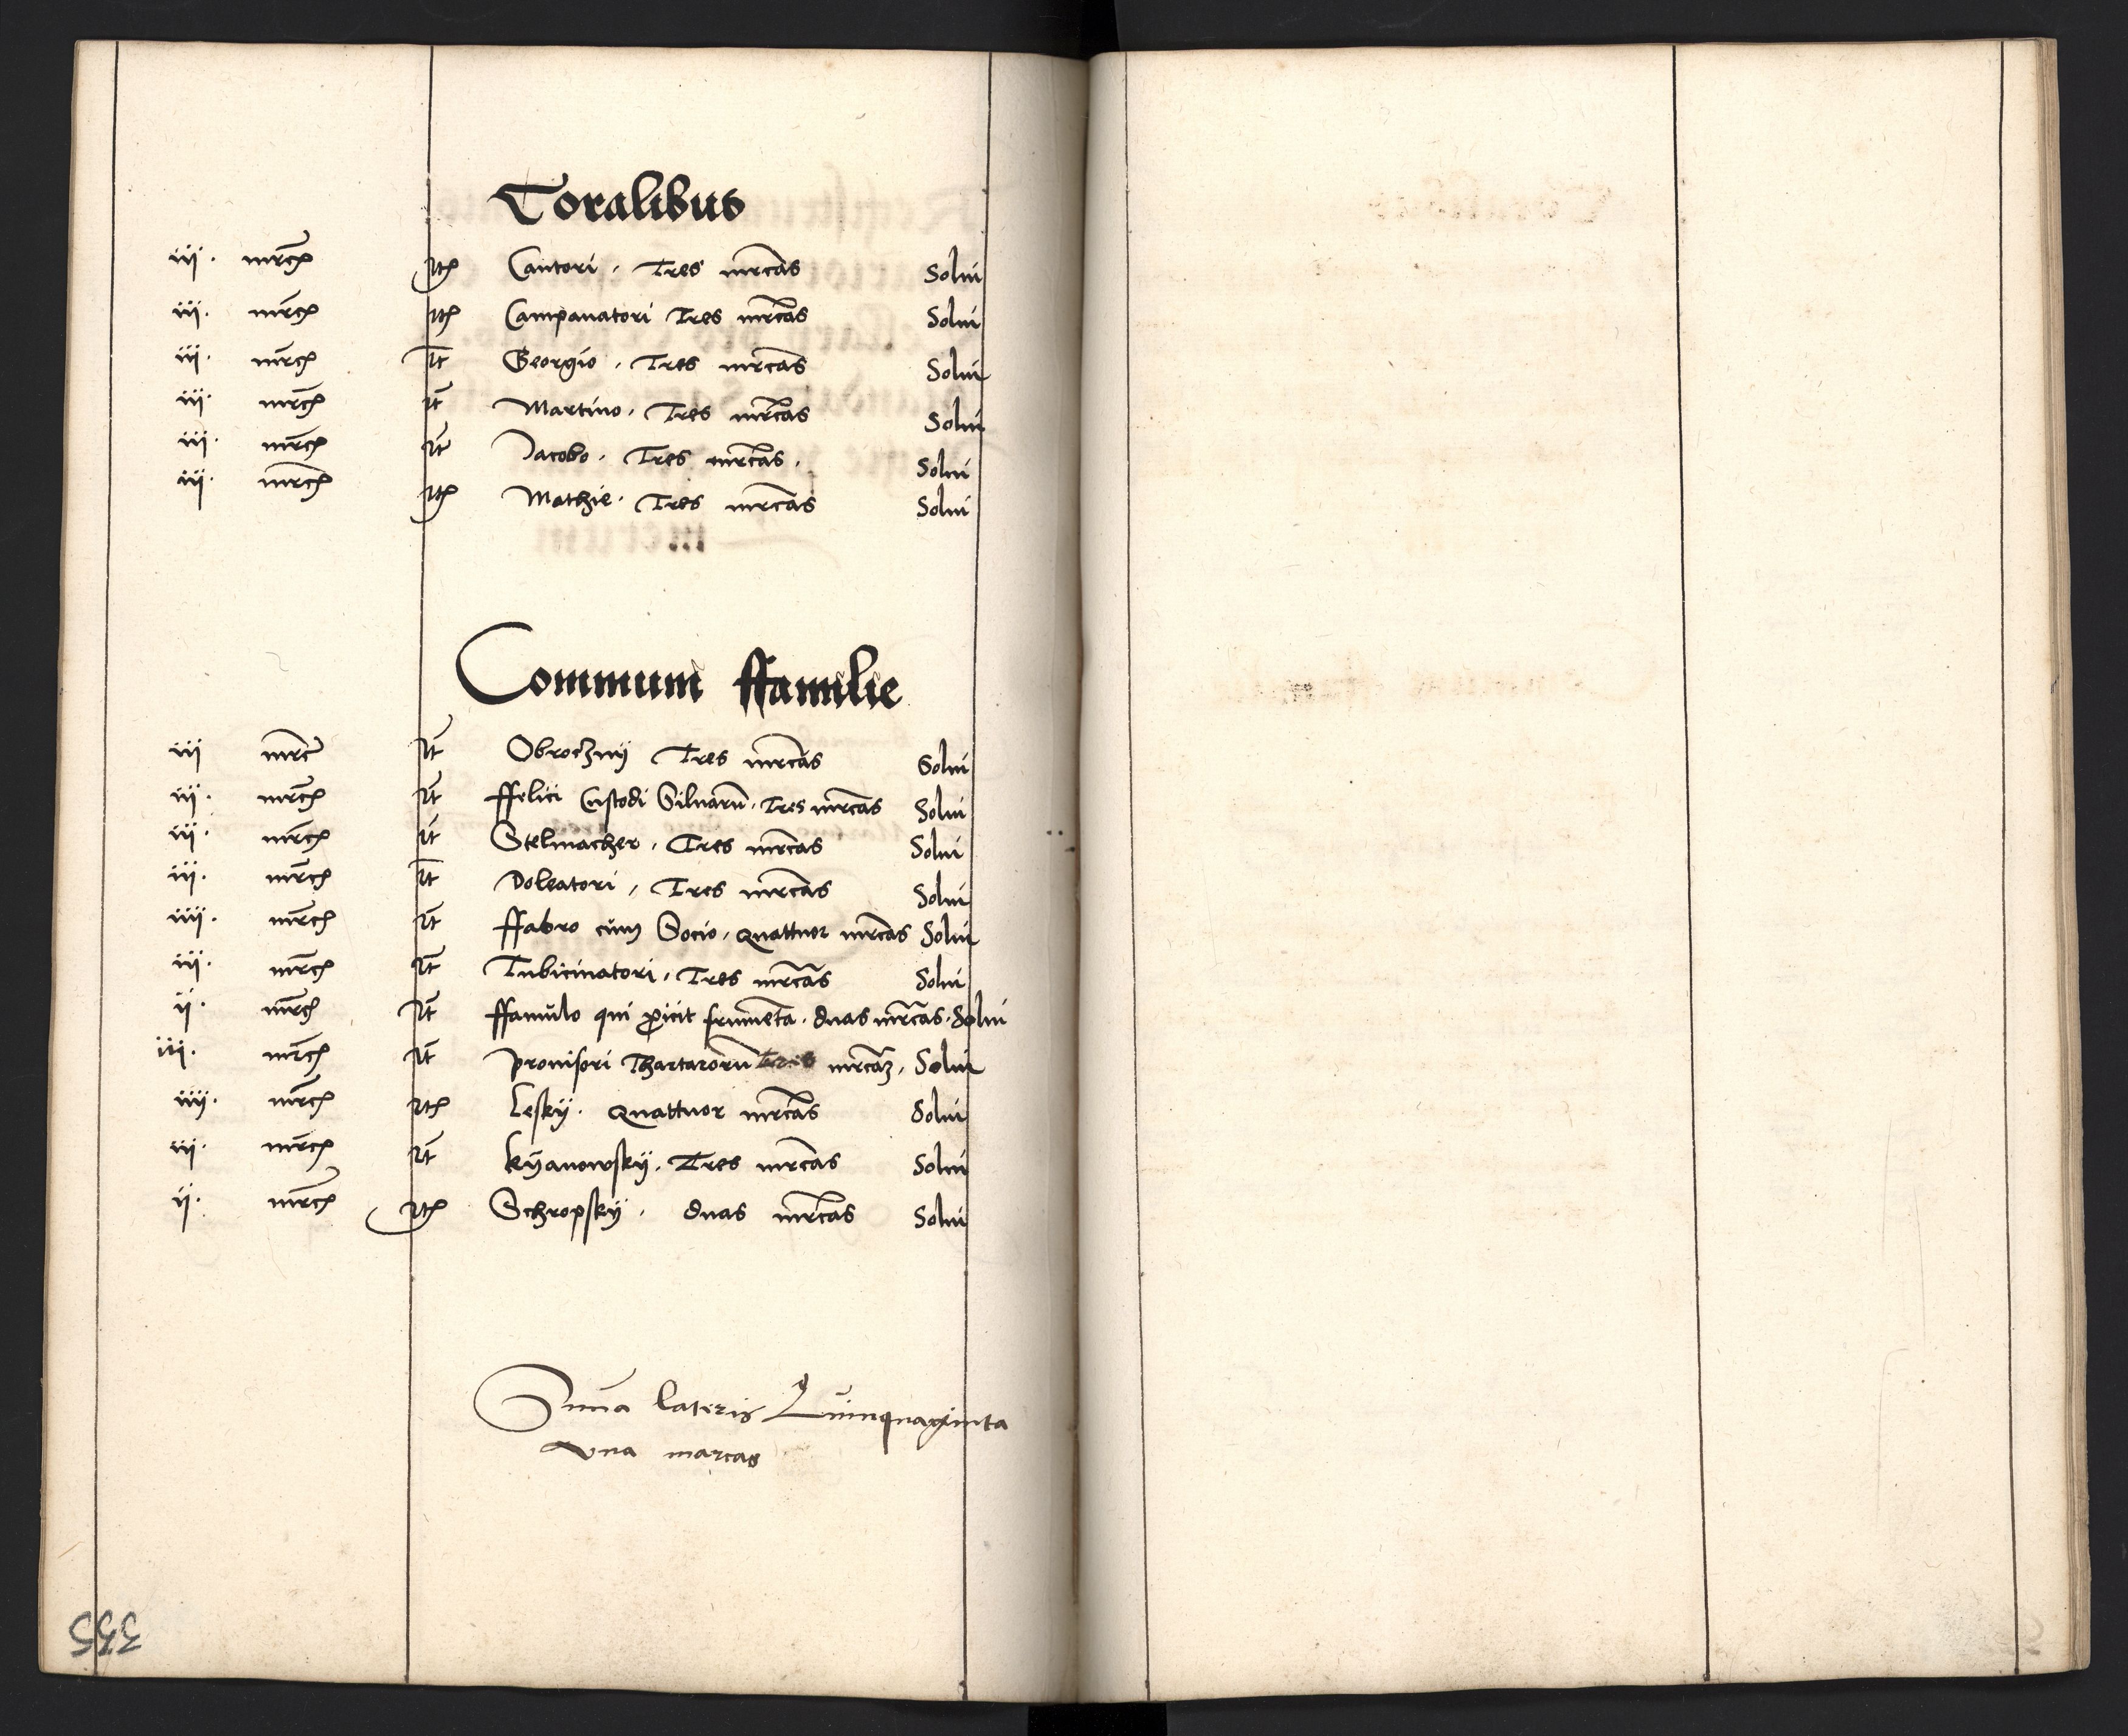 Coralibus
iii. mrc̃ Itc̃ Cantori. Tres mrc̃as Solui
iii. mrc̃ Itc̃ Campanatori Tres mrc̃as Solui
iii. mrc̃ It̃ Georgio. Tres mrc̃as Solui
iii. mrc̃ It̃ Martino. Tres mrc̃as Solui
iii. mrc̃ It̃ Jacobo. Tres mrc̃as. Solui
iii. mrc̃ Itc̃ Mathie. Tres mrc̃as Solui
Communi ffamilie
iii mrc̃ It̃ Obroczny Tres mrc̃as Solui
iii. mrc̃ It̃ ffelici Custodi Siluarũ. Tres mrc̃as Solui
iii. mrc̃ It̃ Stelmacher. Tres mrc̃as Solui
iii. mrc̃ It̃ Doleatori. Tres mrc̃as Solui
iiii. mrc̃ It̃ ffabro cum Socio. Quattuor mrc̃as Solui
iii. mrc̃ It̃ Tubicinatori. Tres mrc̃as Solui
ii. mrc̃ It̃ ffamulo qui ꝓicit frumẽta. duas mrc̃as. Solui
iii. mrc̃ It̃ prouisori Thartarorũ Tres mrc̃az. Solui
iiii. mrc̃ Itc̃ Lesky. Quattuor mrc̃as Solui
iii. mrc̃ It̃ kyanowsky. Tres mrc̃as Solui
ii. mrc̃ Itc̃ Schropsky. duas mrc̃as Solui
Sum̃a lateris Quinquaginta
Vna marcas
335